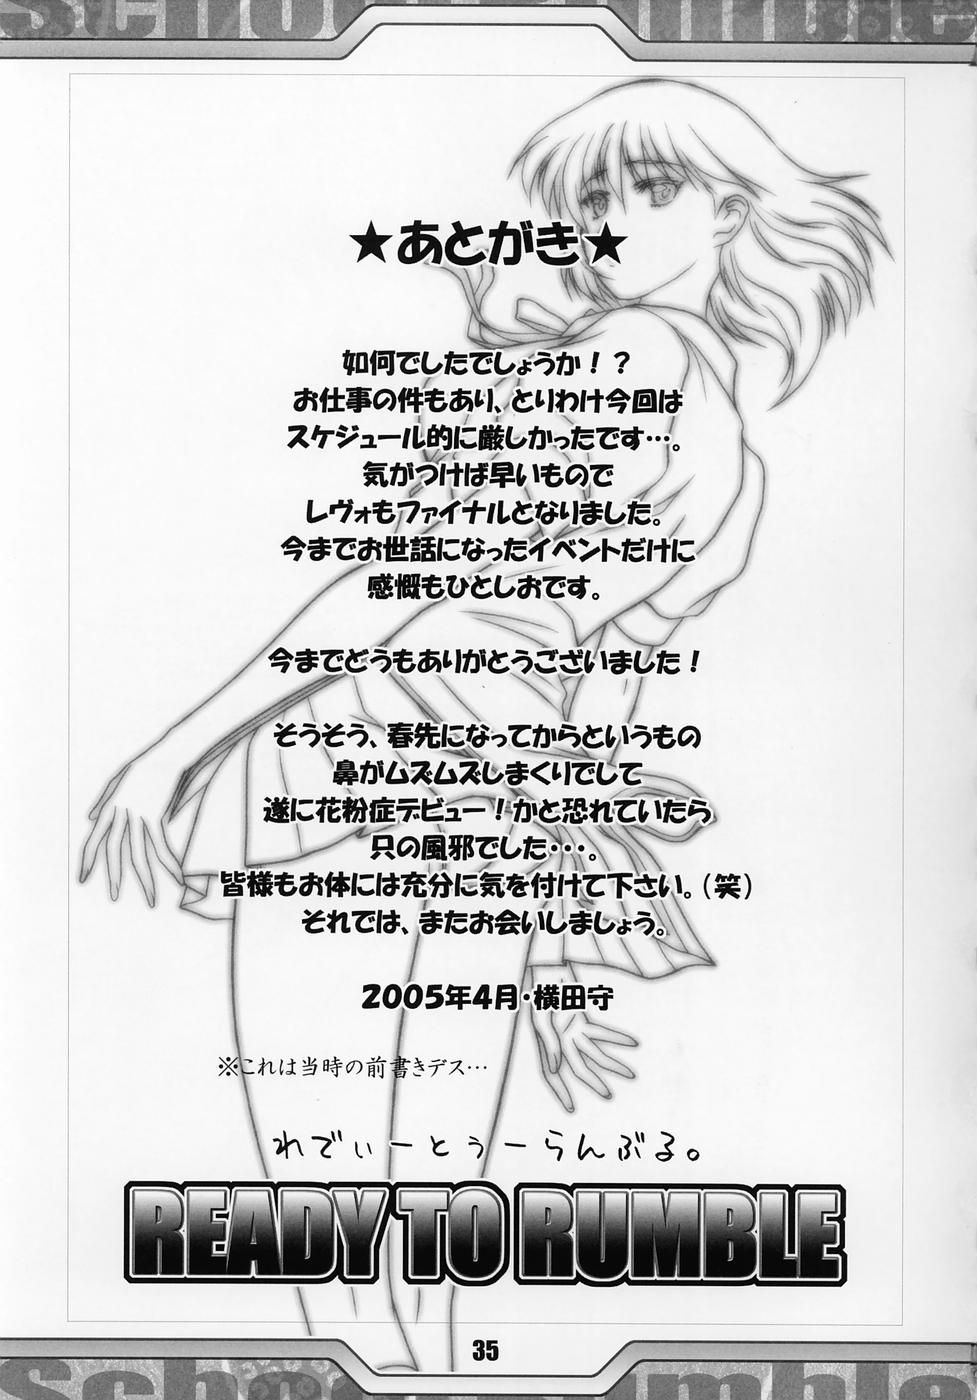 School Rumble
★あとがき★
如何でしたでしょうか！？
お仕事の件もあり、とりわけ今回は
スケジュール的に厳しかったです…。
気がつけば早いもので
レヴォもファイナルとなりました。
今までお世話になったイベントだけに
感慨もひとしおです。
今までどうもありがとうございました！
そうそう、春先になってからというもの
鼻がムズムズしまくりでして
遂に花粉症デビュー！かと恐れていたら
只の風邪でした…。
皆様もお体には充分に気を付けて下さい。（笑）
それでは、またお会いしましょう。
2005年4月・横田守
※これは当時の前書きデス…
れでぃーとぅーらんぶる。
READY TO RUMBLE
35
School Rumble